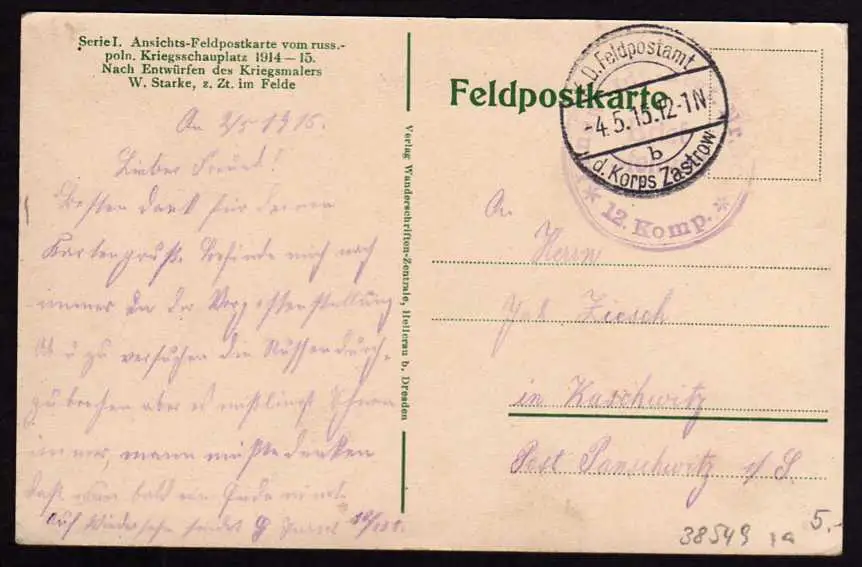 Serie I. Ansichts-Feldpostkarte vom russ.-
poln. Kriegsschauplatz 1914—15.
Nach Entwürfen des Kriegsmalers
W. Starke, z. Zt. im Felde
An 2/5 1915.
Lieber Freund!
Besten Dank für deinen
Kartengruß. Befinde mich noch
immer in der Vorpostenstellung
Ab u zu versuchen die Russen durch-
zubrechen aber es mißlingt Ihnen
immer, mann müßte denken
daß nun bald ein Ende nimt.
Auf Wiedersehn sendet
Verlag Wanderschriften-Zentrale, Hellerau b. Dresden
Feldpostkarte
D. Feldpostamt
-4.5.15.12-1N
b
d. Korps Zastrow
* 12. Komp. *
An
Herrn
Jak. Ziesch
in Kaschwitz
Post Panschwitz i/S.
38549
5.-